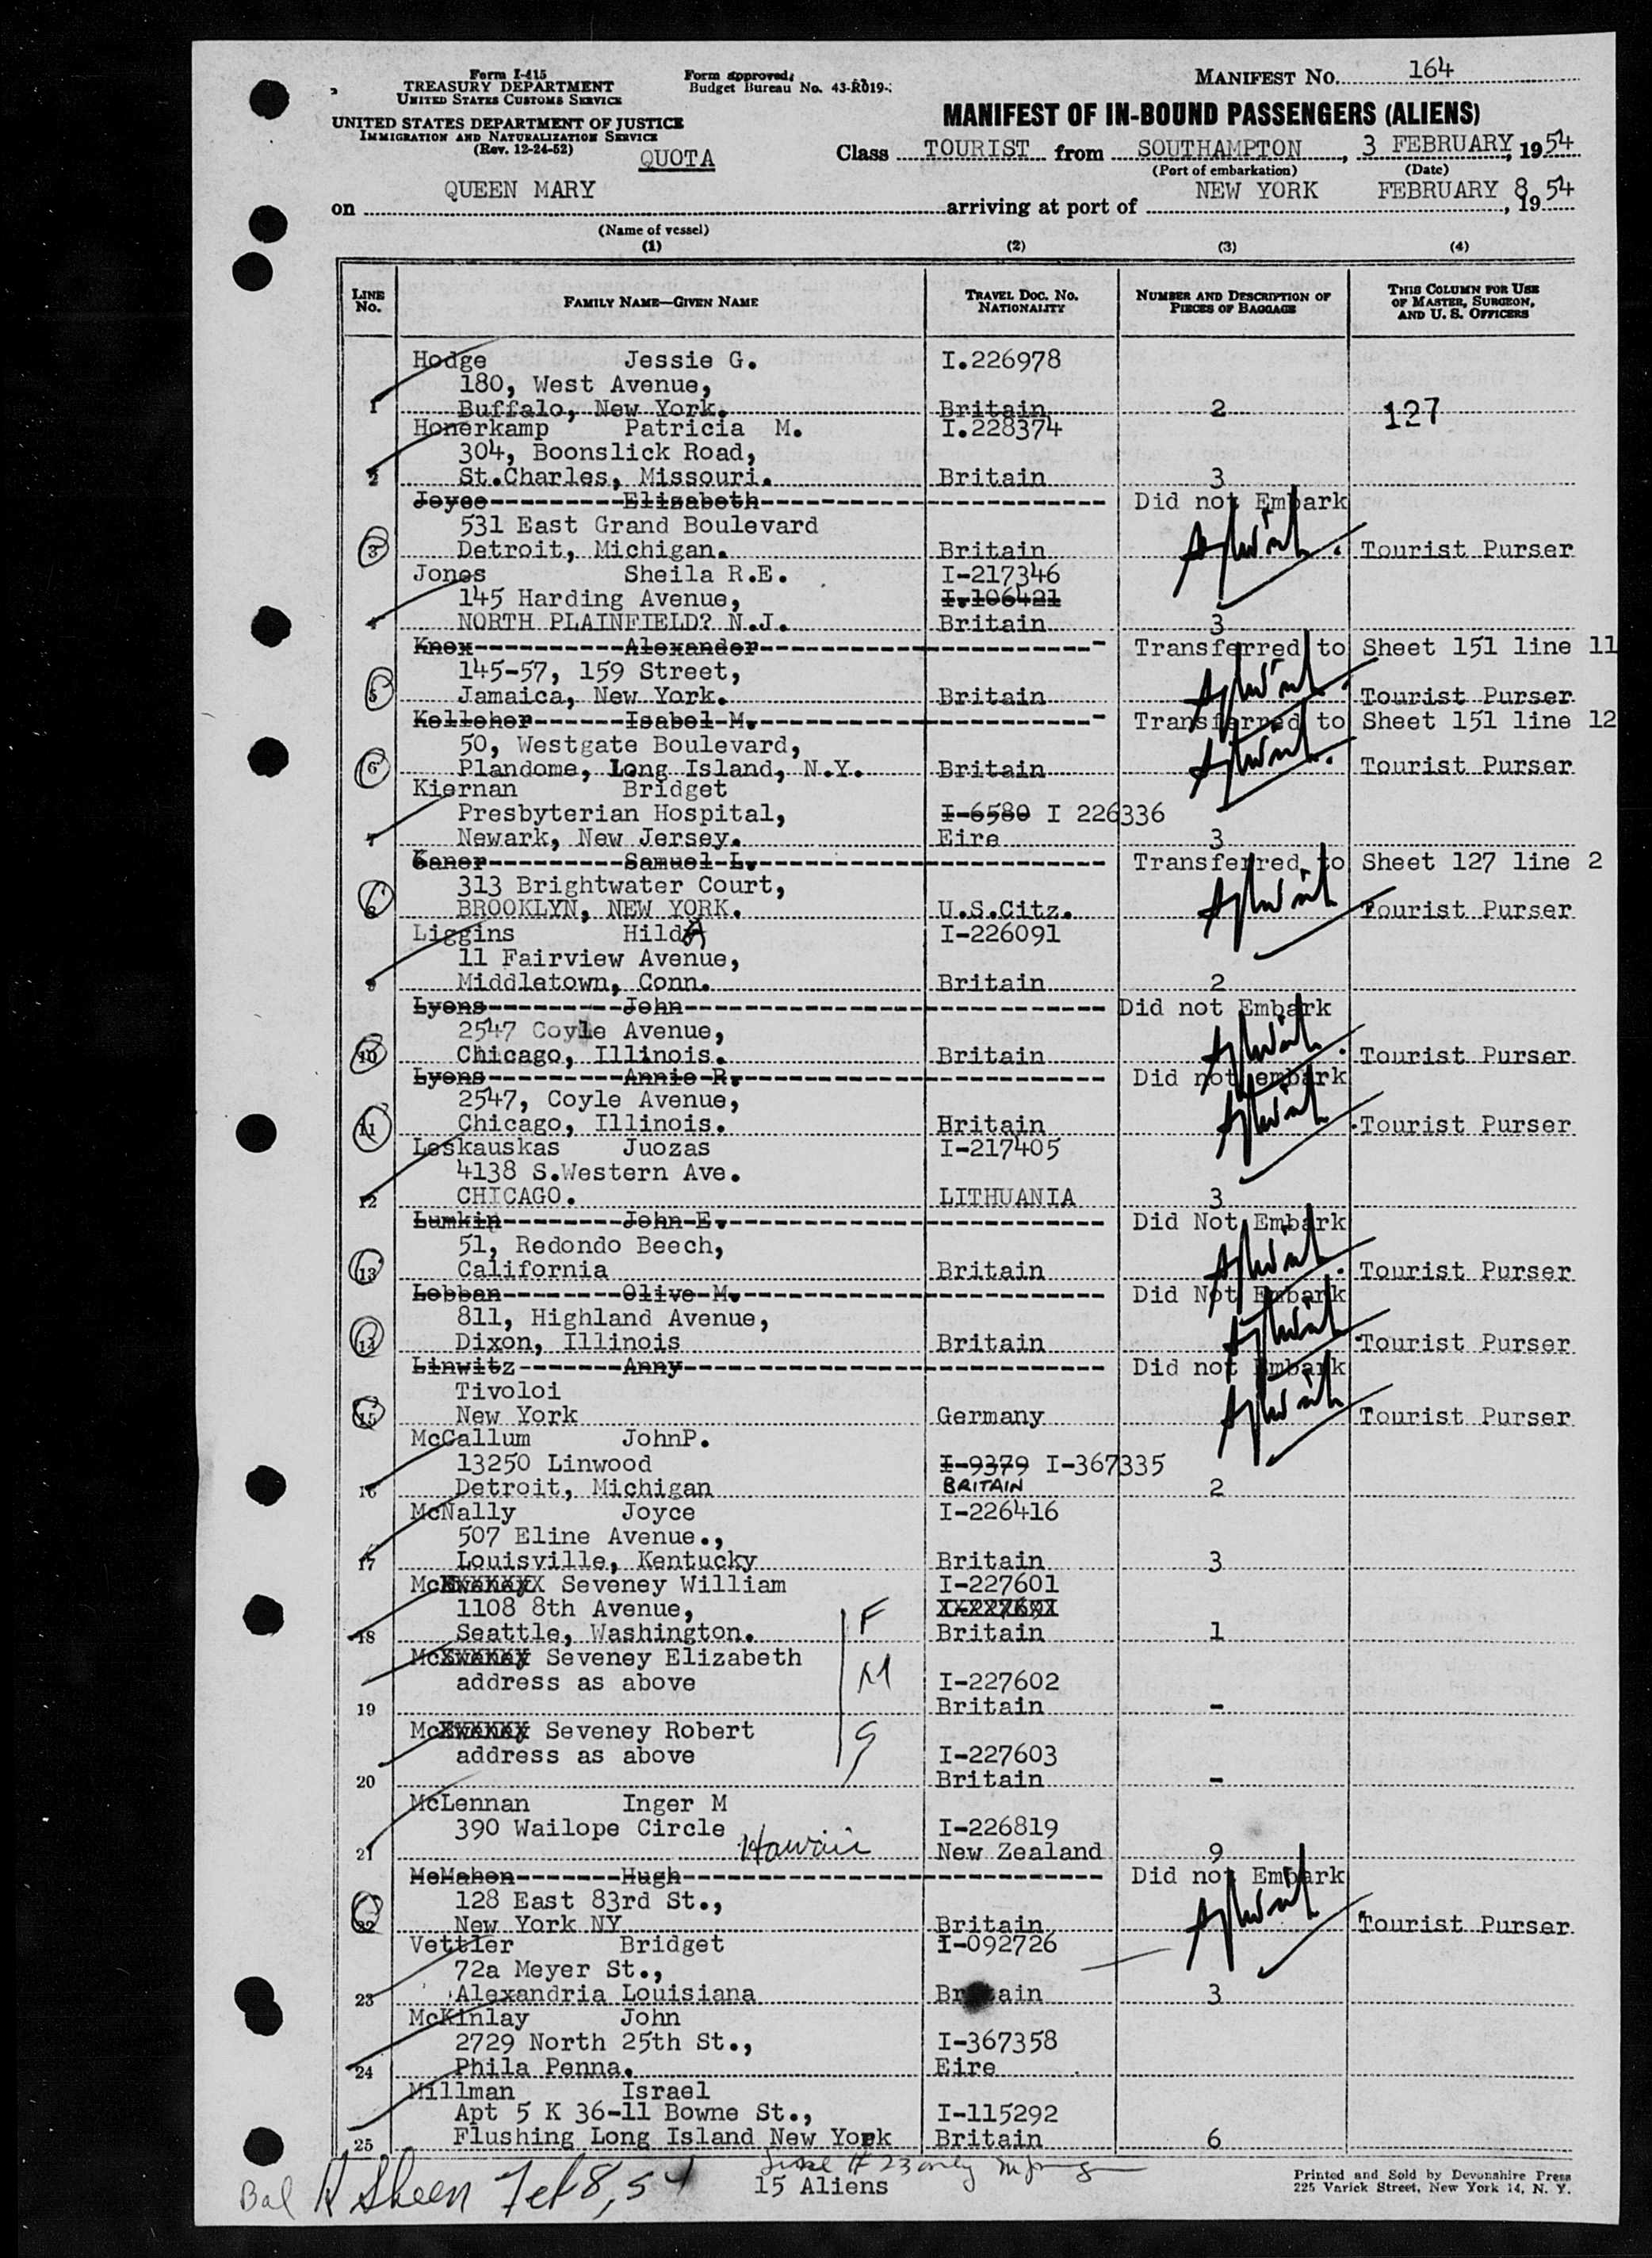 Form I-415
TREASURY DEPARTMENT
UNITED STATES CUSTOMS SERVICE
UNITED STATES DEPARTMENT OF JUSTICE
IMMIGRATION AND NATURALIZATION SERVICE
(Rev. 12-24-52)
Form approved:
Budget Bureau No. 43-R019-
MANIFEST NO. 164
MANIFEST OF IN-BOUND PASSENGERS (ALIENS)
QUOTA
Class TOURIST from SOUTHAMPTON, 3 FEBRUARY, 1954
(Port of embarkation) (Date)
on QUEEN MARY arriving at port of NEW YORK FEBRUARY 8, 1954
(Name of vessel)
(1) (2) (3) (4)
LINE No. FAMILY NAME—GIVEN NAME TRAVEL DOC. NO. NATIONALITY NUMBER AND DESCRIPTION OF PIECES OF BAGGAGE THIS COLUMN FOR USE OF MASTER, SURGEON, AND U. S. OFFICERS
Hodge Jessie G. I.226978
180, West Avenue,
1 Buffalo, New York. Britain 2 127
Honerkamp Patricia M. I.228374
304, Boonslick Road,
2 St.Charles, Missouri. Britain 3
Joyce Elizabeth Did not Embark
531 East Grand Boulevard
3 Detroit, Michigan. Britain Tourist Purser
Jones Sheila R.E. I-217346
145 Harding Avenue, I.106421
4 NORTH PLAINFIELD? N.J. Britain 3
Knox Alexander Transferred to Sheet 151 line 11
145-57, 159 Street,
5 Jamaica, New York. Britain Tourist Purser
Kelleher Isabel M. Transferred to Sheet 151 line 12
50, Westgate Boulevard,
6 Plandome, Long Island, N.Y. Britain Tourist Purser
Kiernan Bridget
Presbyterian Hospital, I-6580 I 226336
7 Newark, New Jersey. Eire 3
Kaner Samuel L. Transferred to Sheet 127 line 2
313 Brightwater Court,
8 BROOKLYN, NEW YORK. U.S.Citz. Tourist Purser
Liggins HildA I-226091
11 Fairview Avenue,
9 Middletown, Conn. Britain 2
Lyons John Did not Embark
2547 Coyle Avenue,
10 Chicago, Illinois. Britain Tourist Purser
Lyons Annie R. Did not embark
2547, Coyle Avenue,
11 Chicago, Illinois. Britain Tourist Purser
Leskauskas Juozas I-217405
4138 S.Western Ave.
12 CHICAGO. LITHUANIA 3
Lumkin John E. Did Not Embark
51, Redondo Beech,
13 California Britain Tourist Purser
Lobban Olive M. Did Not Embark
811, Highland Avenue,
14 Dixon, Illinois Britain Tourist Purser
Linwitz Anny Did not Embark
Tivoloi
15 New York Germany Tourist Purser
McCallum JohnP.
13250 Linwood I-9379 I-367335
16 Detroit, Michigan BRITAIN 2
McNally Joyce I-226416
507 Eline Avenue.,
17 Louisville, Kentucky Britain 3
Mc Seveney William I-227601
1108 8th Avenue, F
18 Seattle, Washington. Britain 1
Mc Seveney Elizabeth
address as above M I-227602
19 Britain -
Mc Seveney Robert
address as above S I-227603
20 Britain -
McLennan Inger M
390 Wailope Circle I-226819
21 Hawaii New Zealand 9
McMahon Hugh Did not Embark
128 East 83rd St.,
22 New York NY Britain Tourist Purser
Vettler Bridget I-092726
72a Meyer St.,
23 Alexandria Louisiana Britain 3
McKinlay John
2729 North 25th St., I-367358
24 Phila Penna. Eire
Millman Israel
Apt 5 K 36-11 Bowne St., I-115292
25 Flushing Long Island New York Britain 6
Bal H Sheen Feb 8, 54
15 Aliens
Printed and Sold by Devonshire Press
225 Varick Street, New York 14, N. Y.